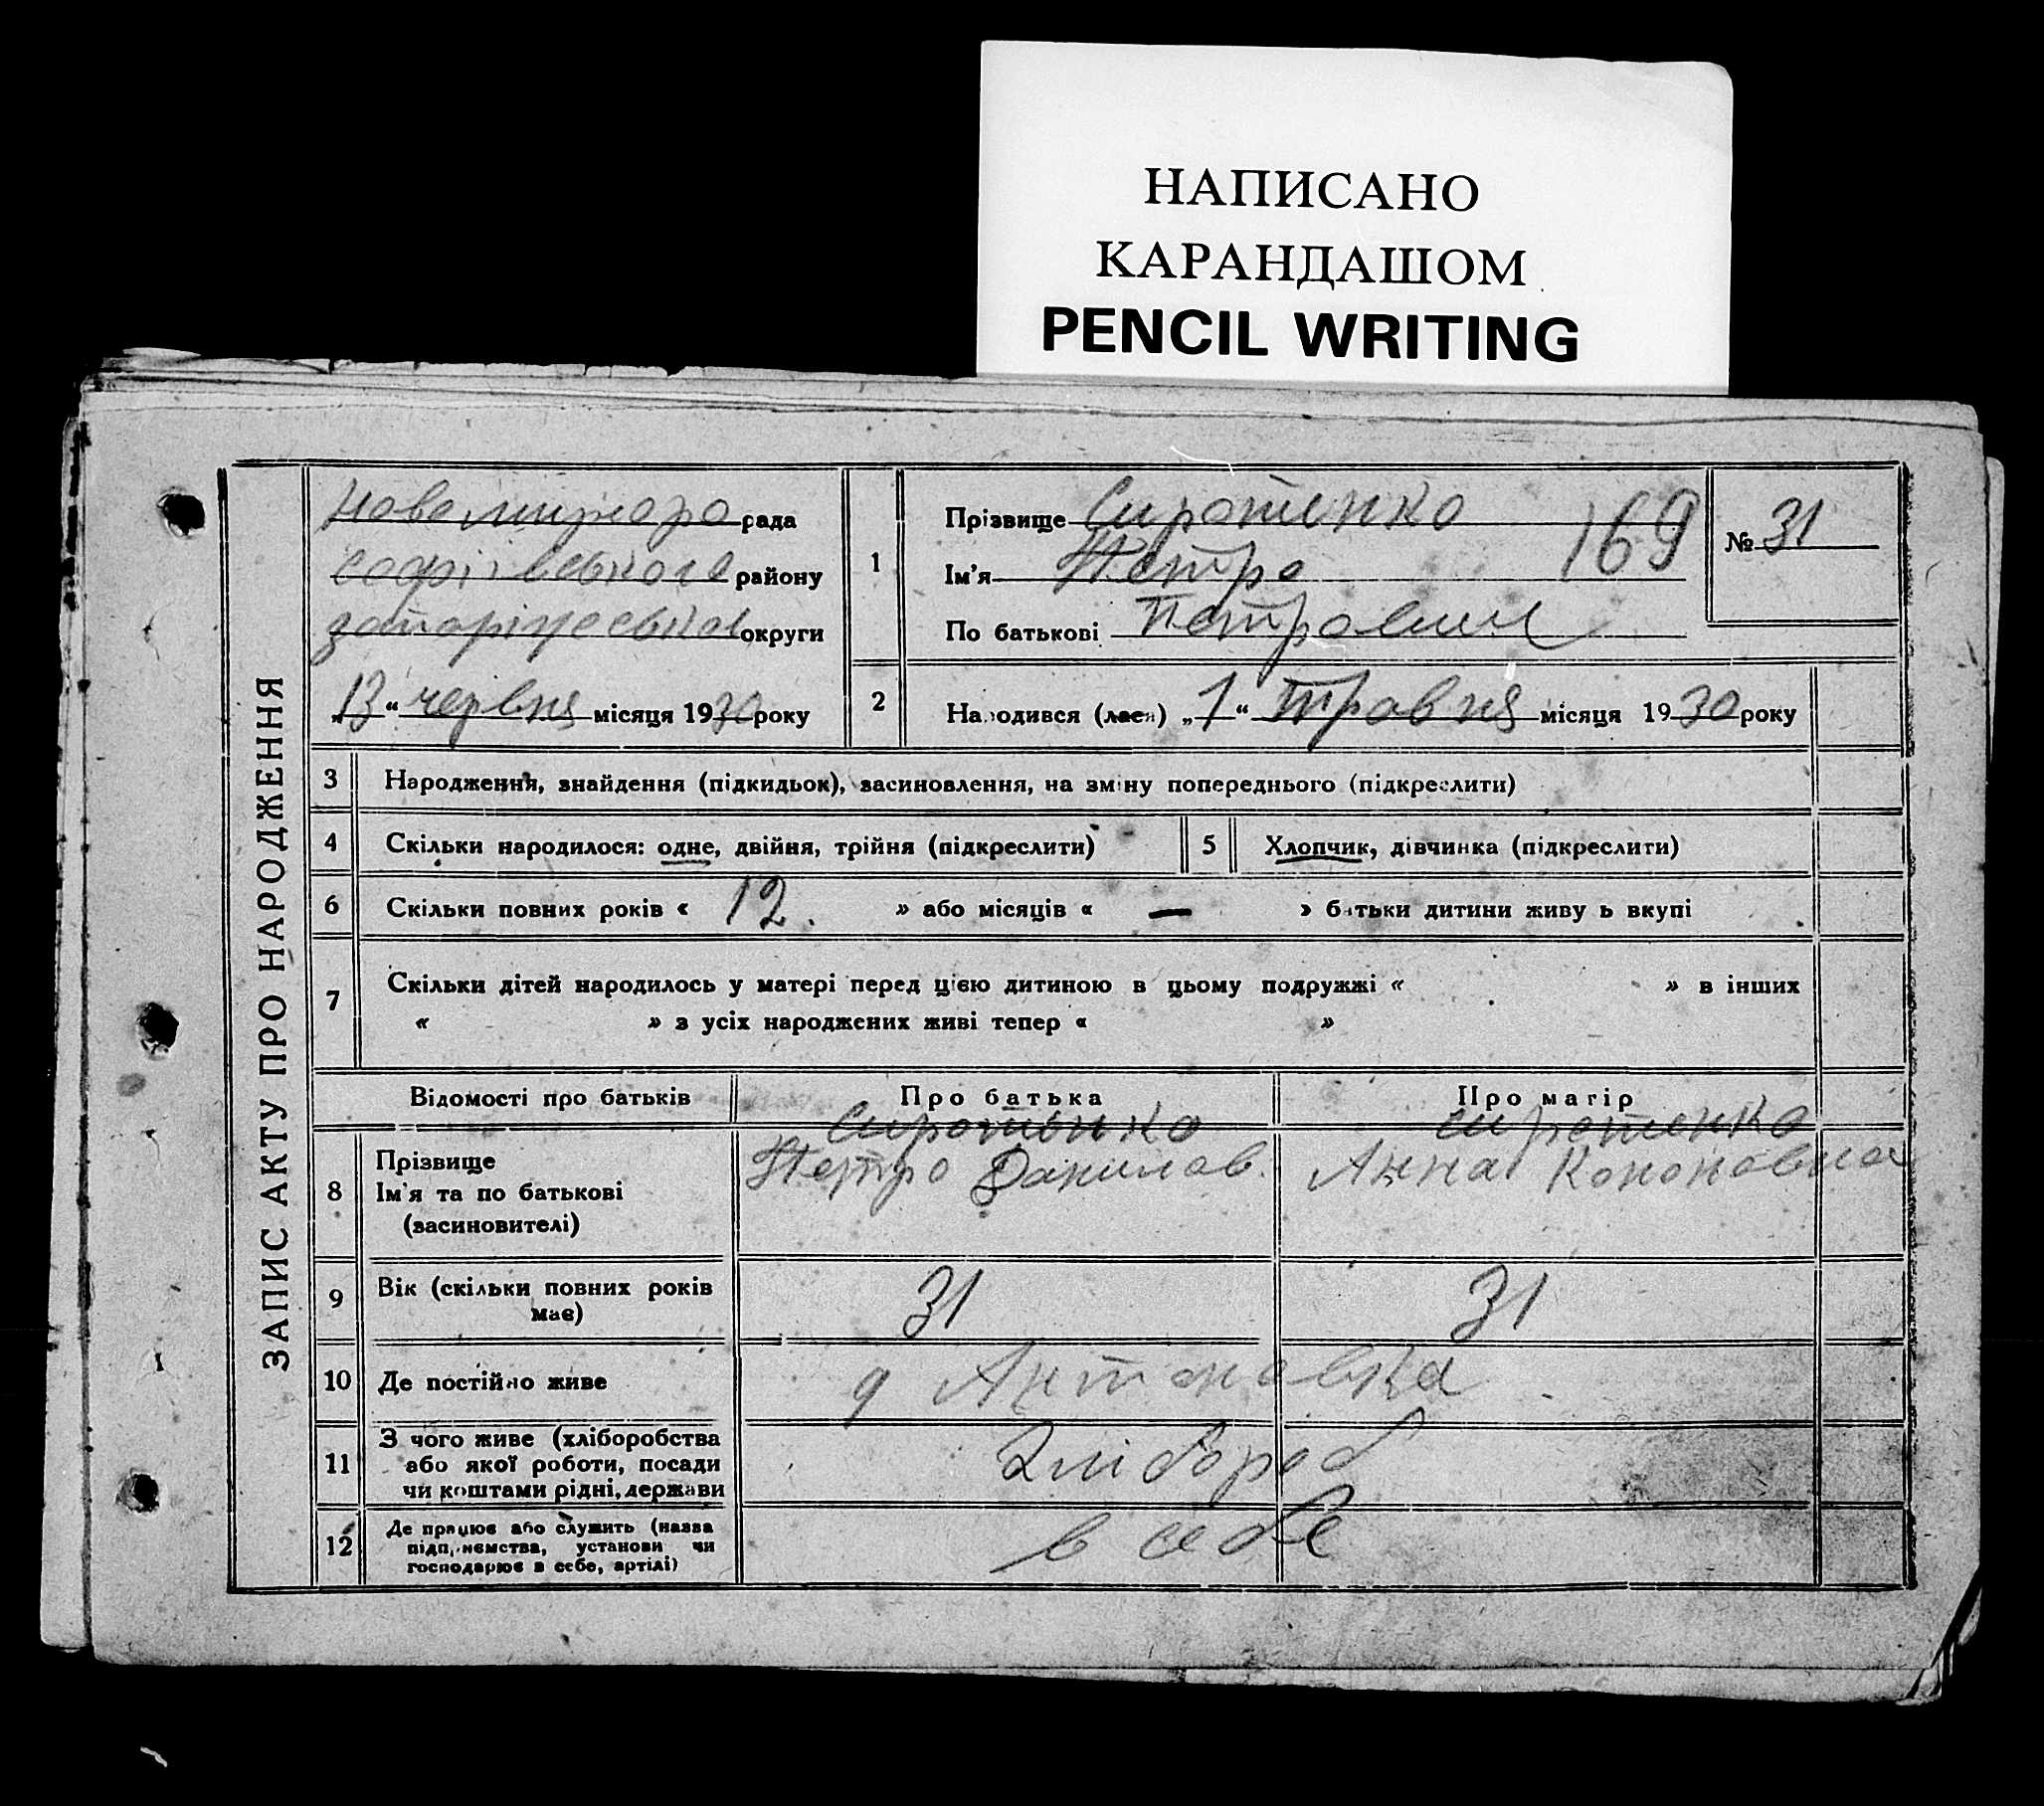 НАПИСАНО
КАРАНДАШОМ
PENCIL WRITING
ЗАПИС АКТУ ПРО НАРОДЖЕННЯ
рада
софіївського району
запоріжської округи
„13“ червня місяця 1930 року
1
Прізвище Сиротенко
169
Ім'я Петро
По батькові Петрович
№ 31
2
Народився (лася) „1“ Травня місяця 1930 року
3 Народження, знайдення (підкидьок), засиновлення, на зміну попереднього (підкреслити)
4 Скільки народилося: одне, двійня, трійня (підкреслити) 5 Хлопчик, дівчинка (підкреслити)
6 Скільки повних років « 12. » або місяців « — » батьки дитини живуть вкупі
7 Скільки дітей народилось у матері перед цією дитиною в цьому подружжі « » в інших
« » з усіх народжених живі тепер « »
Відомості про батьків Про батька Про матір
8 Прізвище
Ім'я та по батькові
(засиновителі)
Сиротенко
Петро Данилов.
Сиротенко
Анна Кононовна
9 Вік (скільки повних років
має)
31 31
10 Де постійно живе
Антоновка
11 З чого живе (хліборобства
або якої роботи, посади
чи коштами рідні, держави
Хлібороб
12 Де працює або служить (назва
підприємства, установи чи
господарює в себе, артілі)
в себе